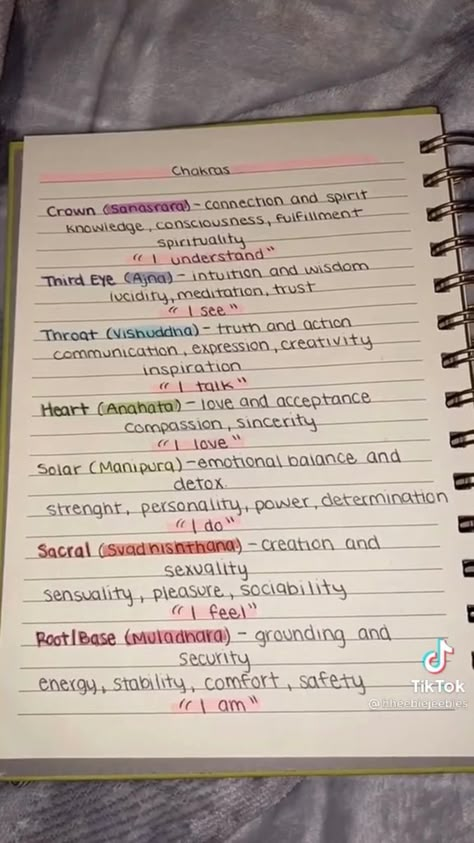 Chakras
Crown (Sahasrara) - connection and spirit
knowledge, consciousness, fulfillment
spirituality
"I understand"
Third Eye (Ajna) - intuition and wisdom
lucidity, meditation, trust
"I see"
Throat (Vishuddha) - truth and action
communication, expression, creativity
inspiration
"I talk"
Heart (Anahata) - love and acceptance
compassion, sincerity
"I love"
Solar (Manipura) - emotional balance and
detox.
strenght, personality, power, determination
"I do"
Sacral (Svadhishthana) - creation and
sexuality
sensuality, pleasure, sociability
"I feel"
Root/Base (Muladhara) - grounding and
security
energy, stability, comfort, safety
"I am"
TikTok